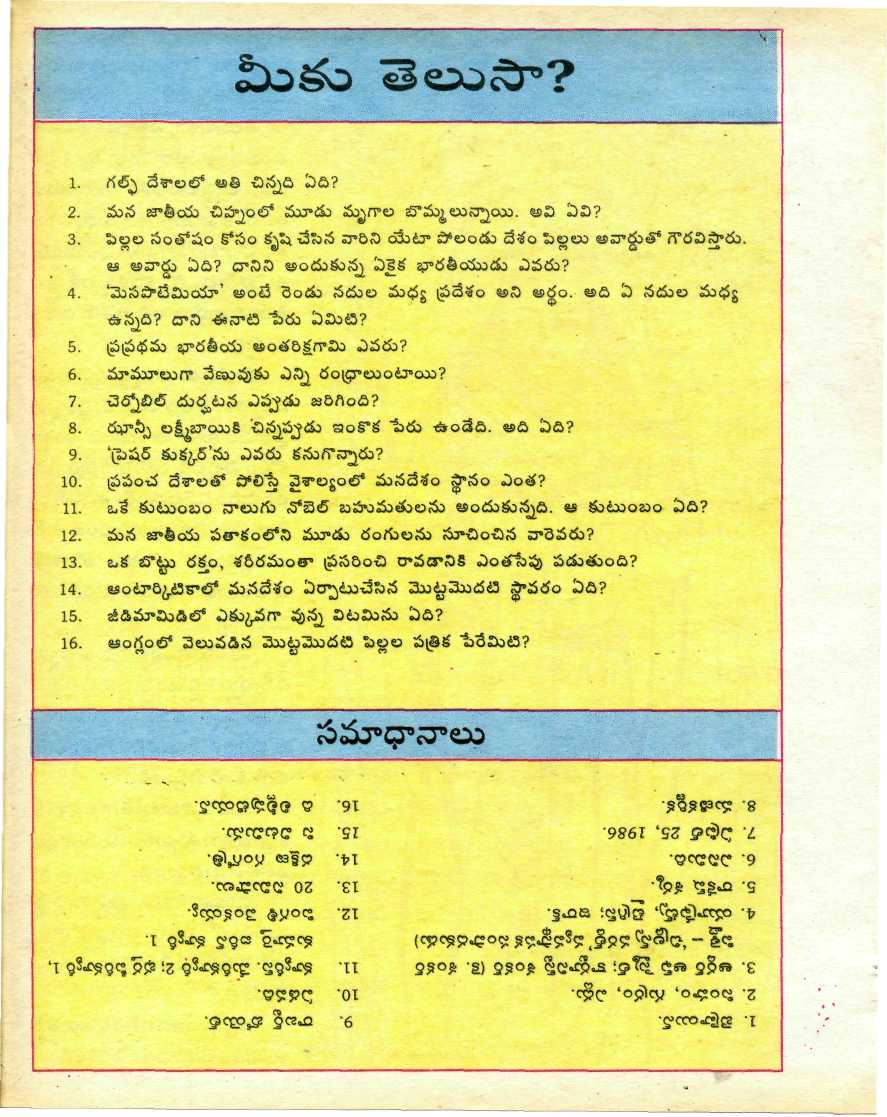 మీకు తెలుసా?
1. గల్ఫ్ దేశాలలో అతి చిన్నది ఏది?
2. మన జాతీయ చిహ్నంలో మూడు మృగాల బొమ్మలున్నాయి. అవి ఏవి?
3. పిల్లల సంతోషం కోసం కృషి చేసిన వారిని యేటా పోలండు దేశం పిల్లలు అవార్డుతో గౌరవిస్తారు.
ఆ అవార్డు ఏది? దానిని అందుకున్న ఏకైక భారతీయుడు ఎవరు?
4. 'మెసపొటేమియా' అంటే రెండు నదుల మధ్య ప్రదేశం అని అర్థం. అది ఏ నదుల మధ్య
ఉన్నది? దాని ఈనాటి పేరు ఏమిటి?
5. ప్రప్రథమ భారతీయ అంతరిక్షగామి ఎవరు?
6. మామూలుగా వేణువుకు ఎన్ని రంధ్రాలుంటాయి?
7. చెర్నోబిల్ దుర్ఘటన ఎప్పుడు జరిగింది?
8. ఝాన్సీ లక్ష్మీబాయికి చిన్నప్పుడు ఇంకొక పేరు ఉండేది. అది ఏది?
9. 'ప్రెషర్ కుక్కర్'ను ఎవరు కనుగొన్నారు?
10. ప్రపంచ దేశాలతో పోలిస్తే వైశాల్యంలో మనదేశం స్థానం ఎంత?
11. ఒకే కుటుంబం నాలుగు నోబెల్ బహుమతులను అందుకున్నది. ఆ కుటుంబం ఏది?
12. మన జాతీయ పతాకంలోని మూడు రంగులను సూచించిన వారెవరు?
13. ఒక బొట్టు రక్తం, శరీరమంతా ప్రసరించి రావడానికి ఎంతసేపు పడుతుంది?
14. ఆంటార్కిటికాలో మనదేశం ఏర్పాటుచేసిన మొట్టమొదటి స్థావరం ఏది?
15. జీడిమామిడిలో ఎక్కువగా వున్న విటమిను ఏది?
16. ఆంగ్లంలో వెలువడిన మొట్టమొదటి పిల్లల పత్రిక పేరేమిటి?
సమాధానాలు
1. బెహ్రాయిన్.
2. సింహం, గుర్రం, ఎద్దు.
3. ఆర్డర్ ఆఫ్ స్మైల్; కార్టూనిస్ట్ శంకర్ (కె. శంకర్
పిళ్లై – 'చిల్డ్రన్స్ వరల్డ్' వ్యవస్థాపక సంపాదకుడు)
4. యూఫ్రేటిస్, టైగ్రిస్; ఇరాక్.
5. రాకేష్ శర్మ.
6. ఎనిమిది.
7. ఏప్రిల్ 25, 1986.
8. మణికర్ణిక.
9. రాబర్ట్ బోయెల్.
10. ఏడవది.
11. క్యూరీస్. మేరీక్యూరీ 2; భర్త పియరీక్యూరీ 1,
కుమార్తె ఐరీన్ క్యూరీ 1.
12. పింగళి వెంకయ్య.
13. 20 నిమిషాలు.
14. దక్షిణ గంగోత్రి.
15. సి విటమిను.
16. ద లిల్లీపుటియన్.